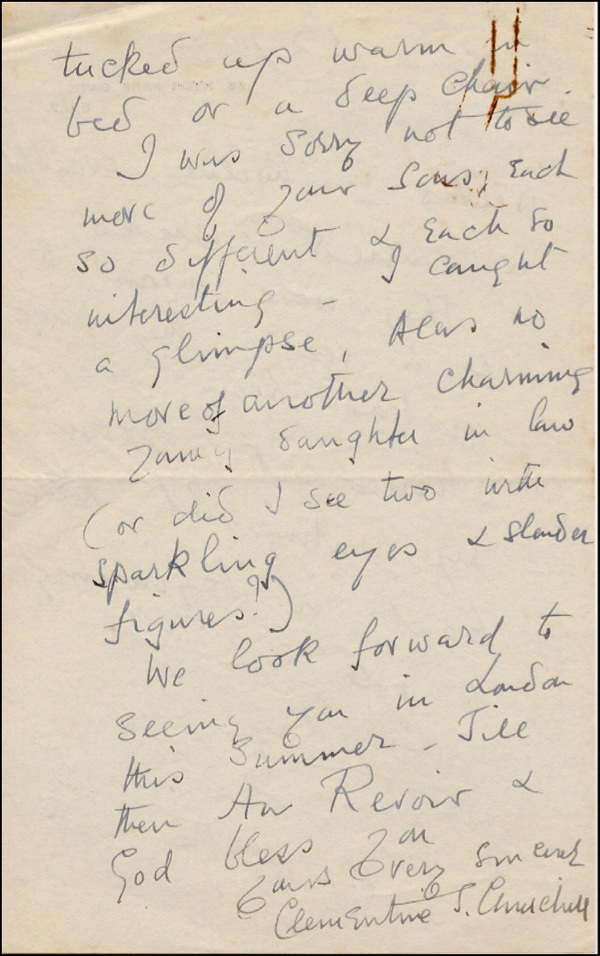 tucked up warm in
bed or a deep chair.
I was sorry not to see
more of your sons, each
so different & each so
interesting - I caught
a glimpse, Alas no
more of another charming
young daughter in law
(or did I see two with
sparkling eyes & slender
figures?)
We look forward to
seeing you in London
this Summer - Till
then Au Revoir &
God bless you
Yours Very sincerely
Clementine S. Churchill